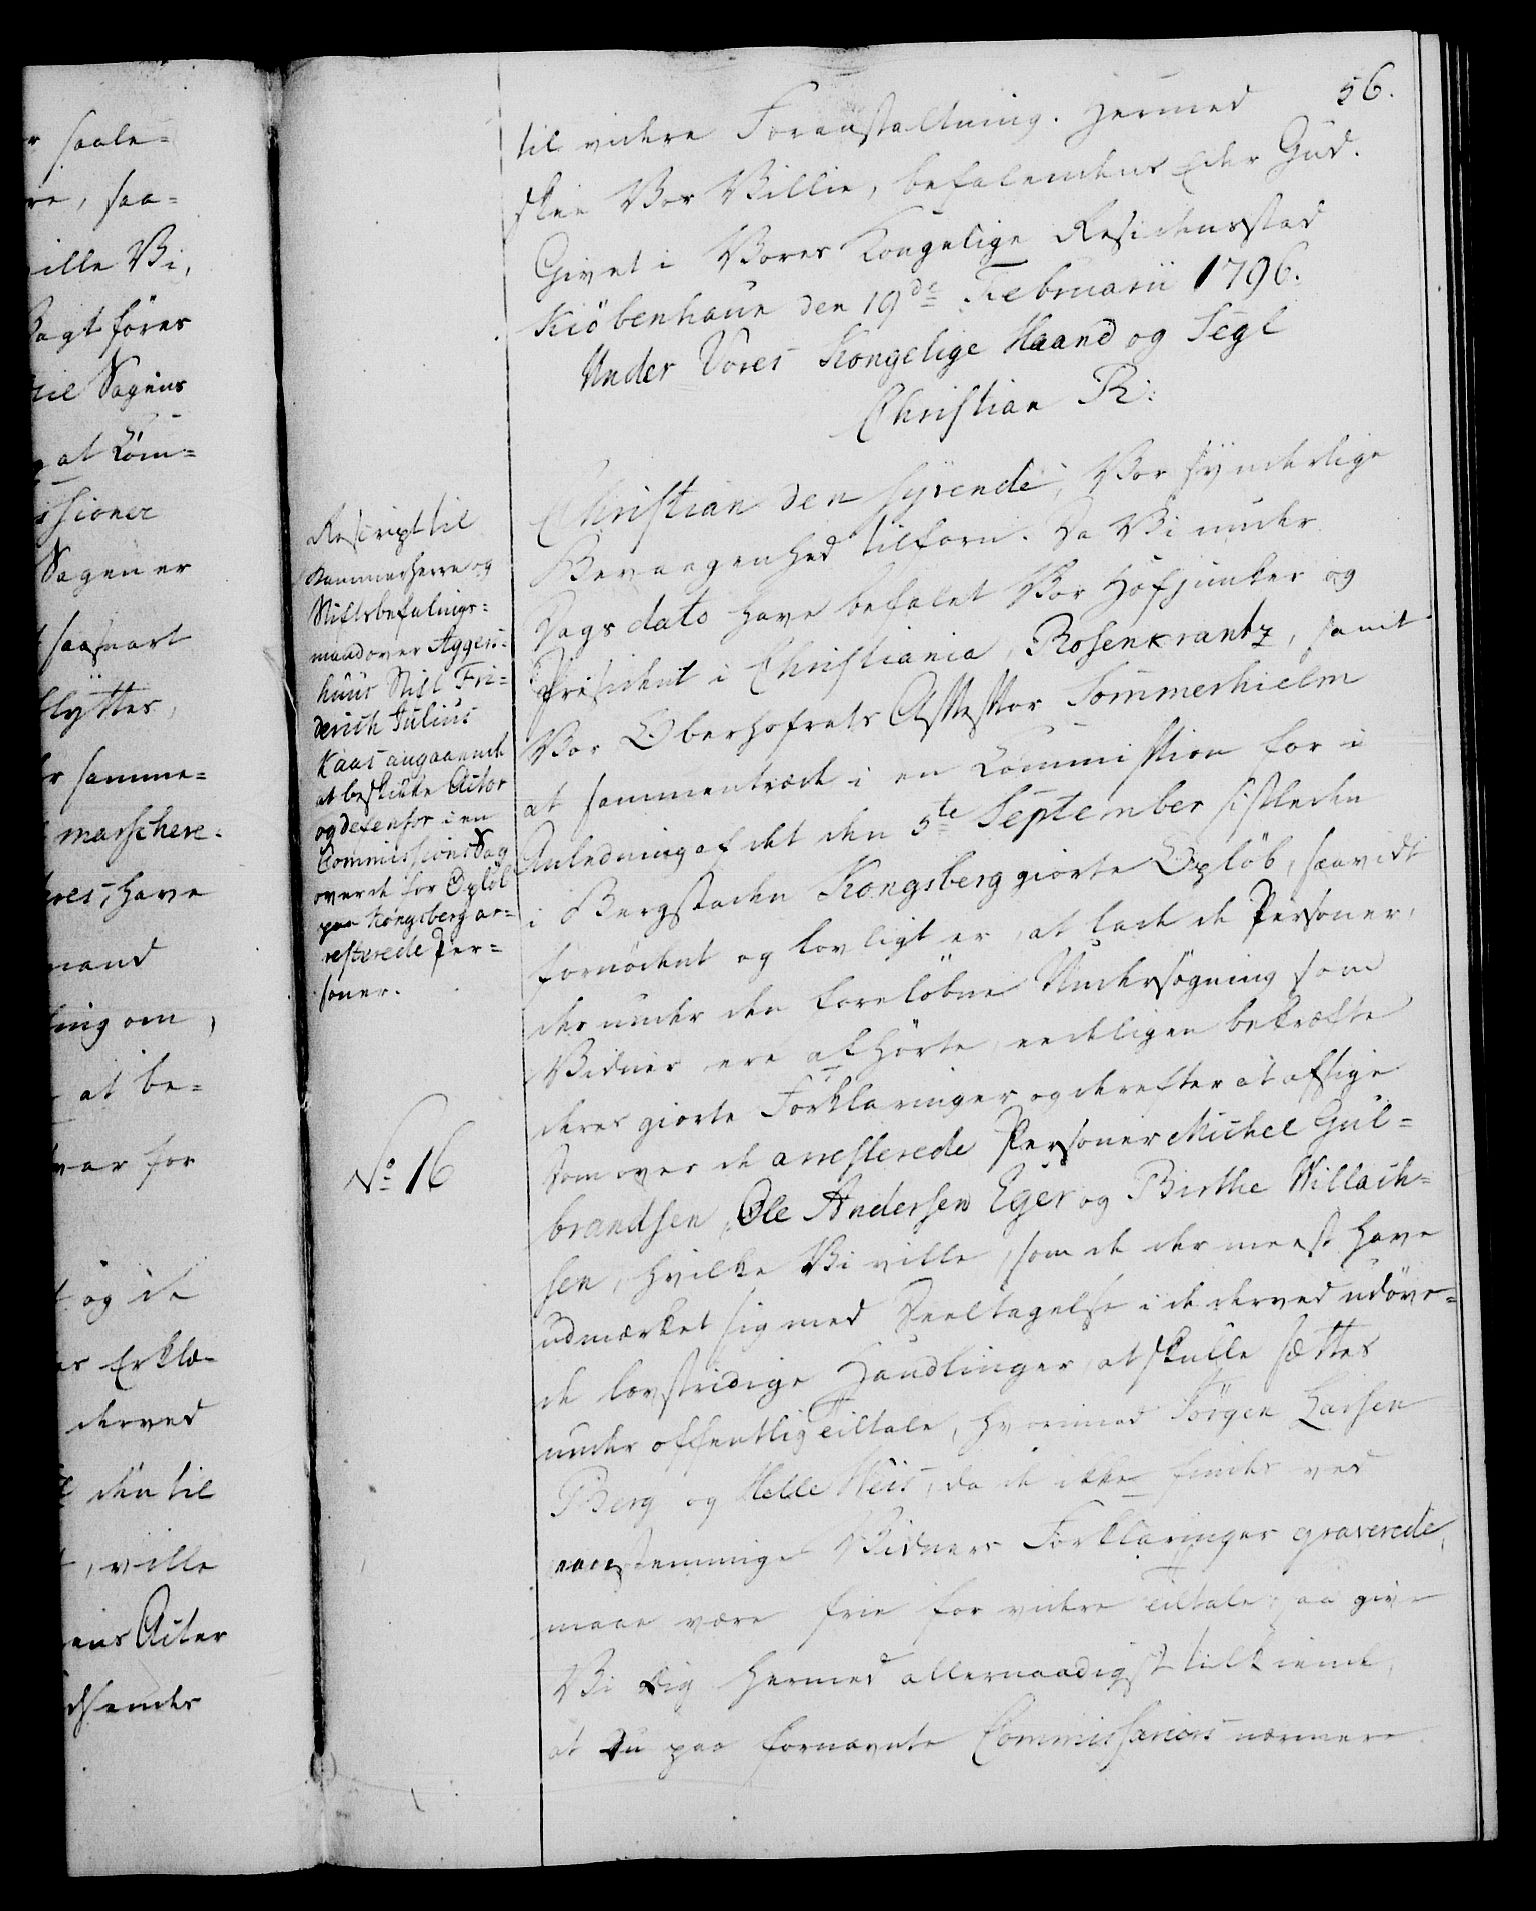 56.
til videre Foranstaltning. Hermed
skeer Vor Villie, befalendes Eder Gud.
Givet i Vores Kongelige Residentsstad
Kiöbenhavn den 19de Februarii 1796.
Under Vores Kongelige Haand og Segl
Christian R:
Christian den Syvende, Vor synderlige
Bevaagenhed tilforn. Da Vi under
Dags dato have befalet Vor Hofjunker og
Præsident i Christiania, Rosenkrantz, samt
Vor Oberhofrets Assessor Sommerhielm
at sammentræde i en Commission for i
Anledning af det den 5te September sistleden
i Bergstaden Kongsberg giorte Opløb, saavidt
fornödent og lovligt er, at lade de Personer,
der under den foreløbne Undersögning som
Vidner ere afhörte, eedeligen bekræfte
deres giorte Forklaringer og derefter at afsige
Dom over de arresterede Personer Michel Gul=
brandsen, Ole Andersen Eger og Birthe Willach=
sen, hvilke Vi ville, som de der meest have
udmærket sig med Deeltagelse i de derved udöve=
de lovstridige Handlinger, at skulle sættes
under offentlig Tiltale, hvorimod Jörgen Larsen
Berg og Helle Neis, da de ikke findes ved
eenstemmige Vidners Forklaringer graverede,
maae være frie for videre Tiltale; saa give
Vi Dig hermed allernaadigst tilkiende,
at Du paa fornævnte Commissariers nærmere
Rescript til
Kammerherre og
Stiftsbefalings=
mand over Aggers=
huus Stift Fri=
derich Julius
Kaas angaaende
at beskikke Actor
og defensor i en
Commissions Sag
over de for Opløb
paa Kongsberg ar=
resterede Per=
soner.
No 16
saale=
re, saa=
ville Vi,
Vagt føres
til Sagens
at Com=
issioner
Sagen er
saasnart
flyttes,
samme=
marschere=
have
mand
ning om,
at be=
svar for
og de
Erklæ=
derved
den til
, ville
ens Acter
dsendes